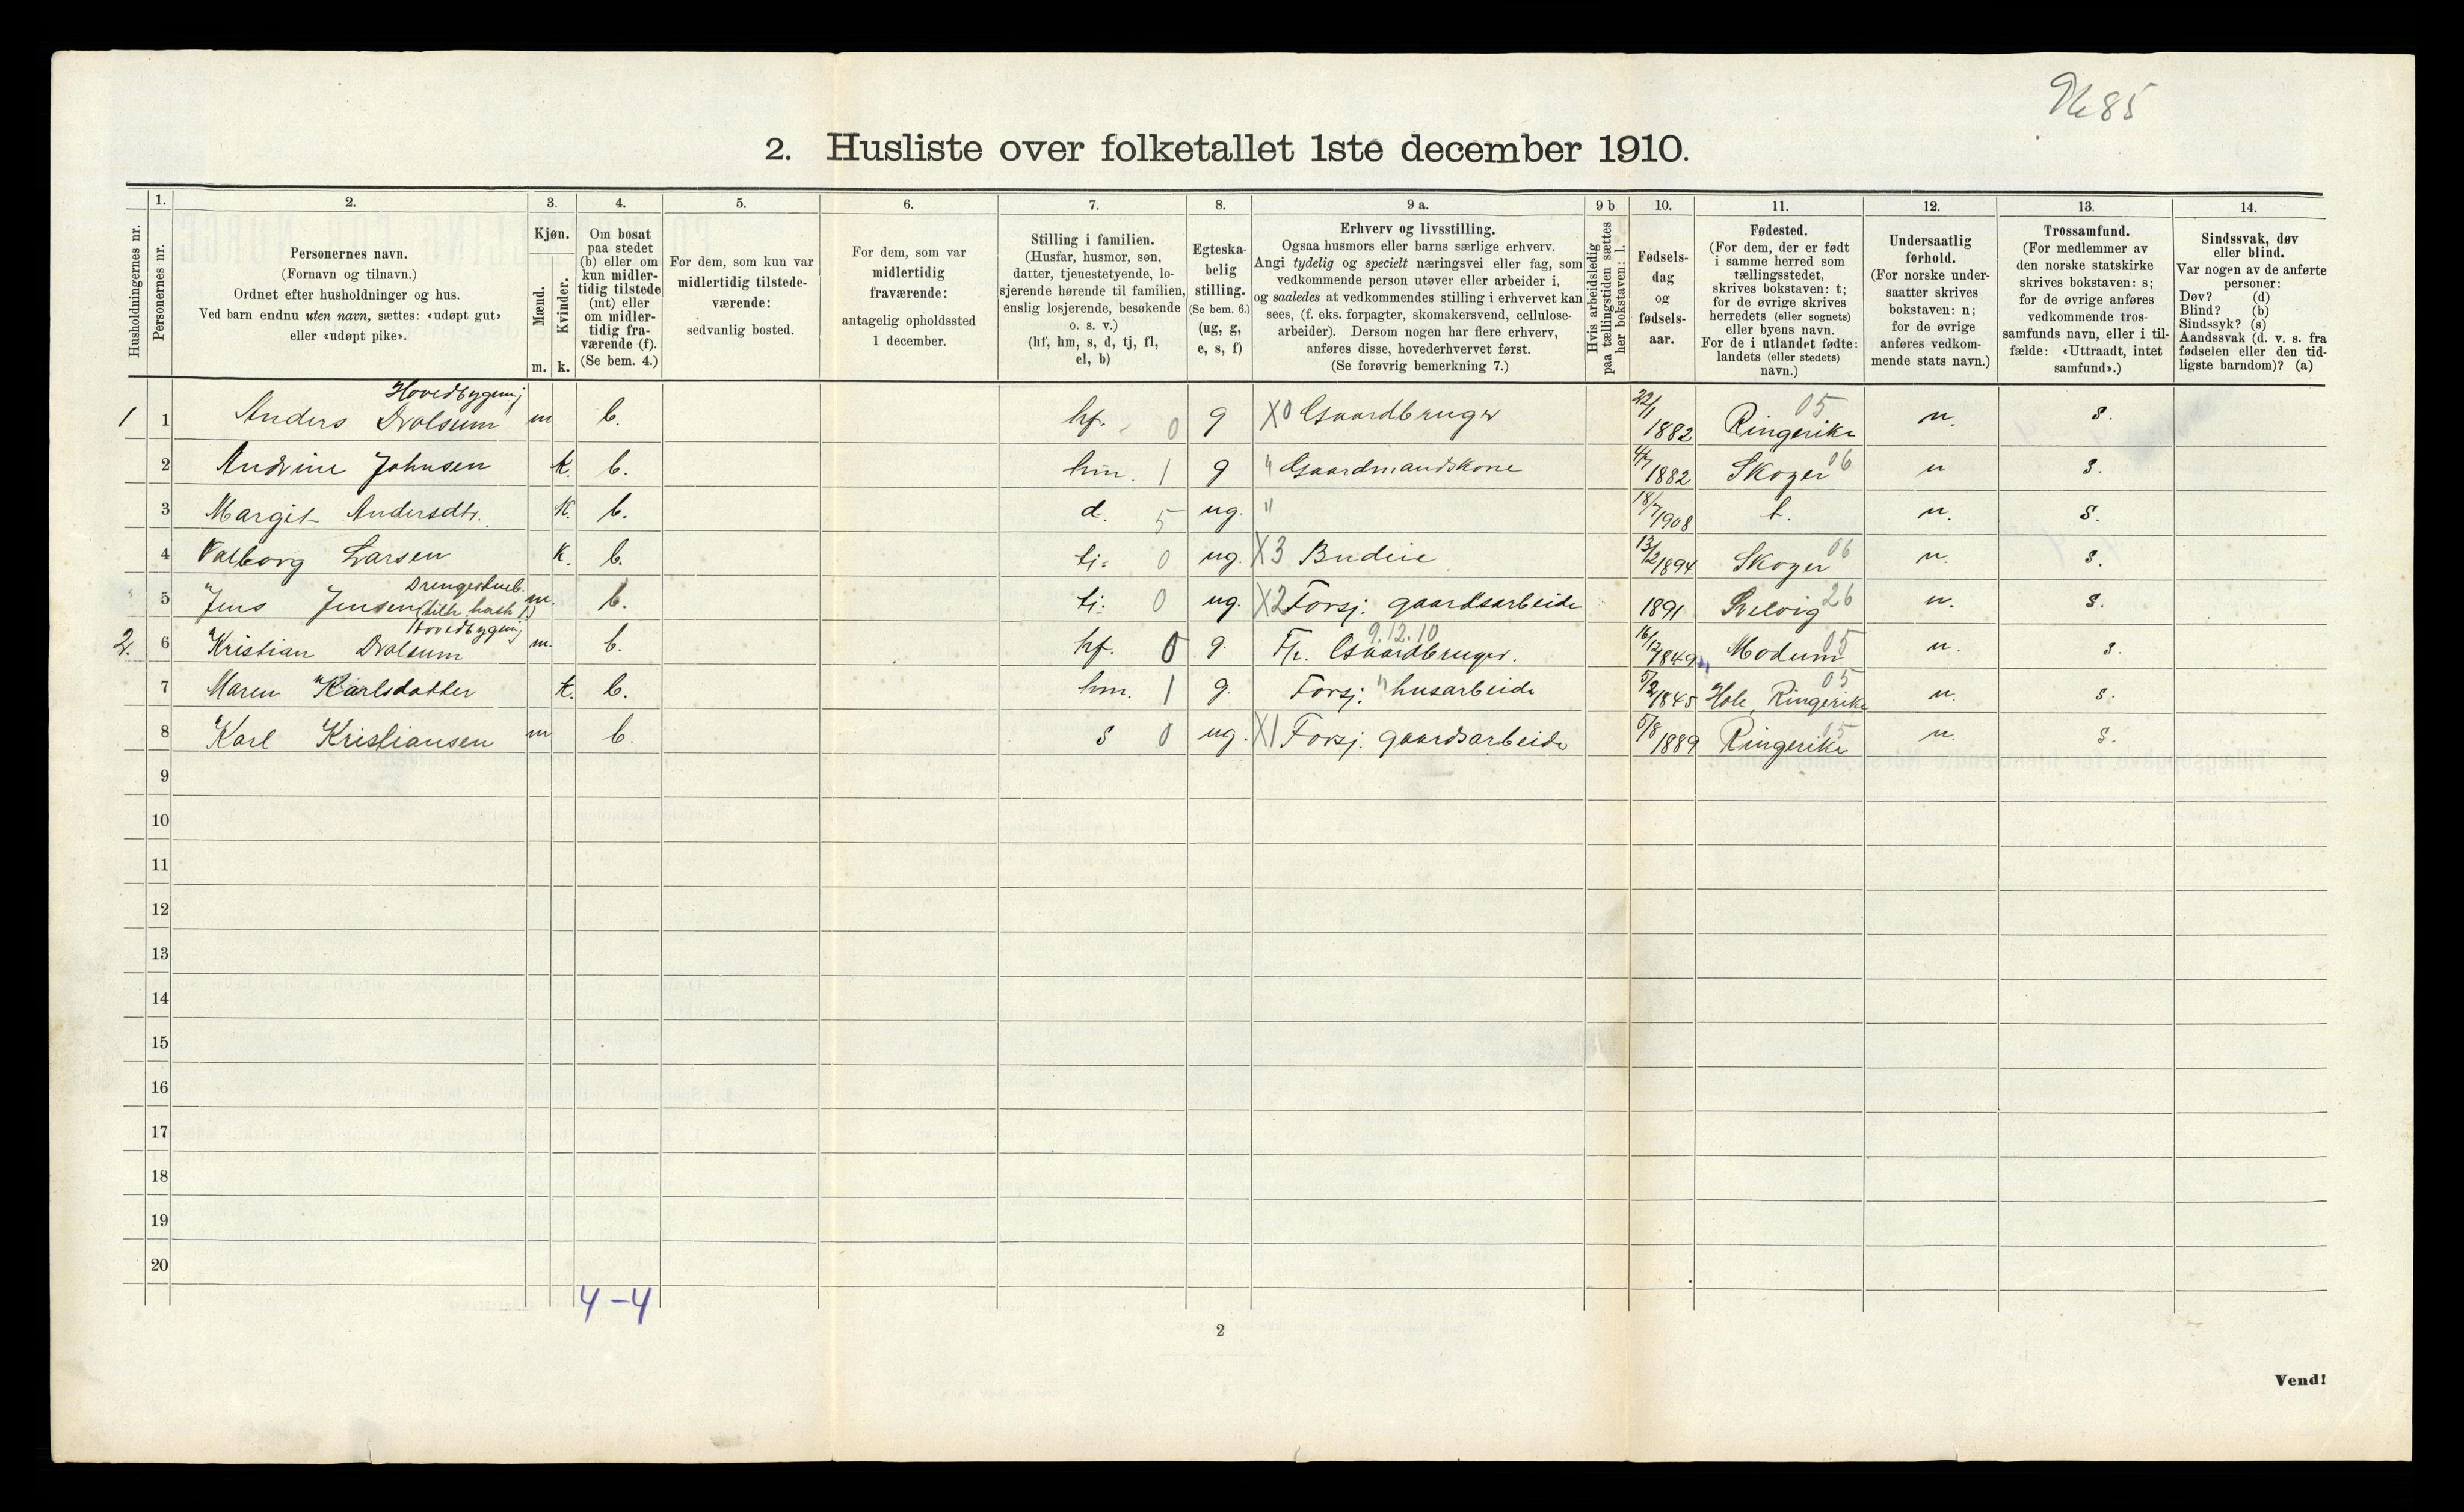 2. Husliste over folketallet 1ste december 1910.
Husholdningernes nr.
1.
Personernes nr.
2.
Personernes navn.
(Fornavn og tilnavn.)
Ordnet efter husholdninger og hus.
Ved barn endnu uten navn, sættes: «udøpt gut»
eller «udøpt pike».
3.
Kjøn.
Mænd.
m.
Kvinder.
k.
4.
Om bosat
paa stedet
(b) eller om
kun midler-
tidig tilstede
(mt) eller
om midler-
tidig fra-
værende (f).
(Se bem. 4.)
5.
For dem, som kun var
midlertidig tilstede-
værende:
sedvanlig bosted.
6.
For dem, som var
midlertidig
fraværende:
antagelig opholdssted
1 december.
7.
Stilling i familien.
(Husfar, husmor, søn,
datter, tjenestetyende, lo-
sjerende hørende til familien,
enslig losjerende, besøkende
o. s. v.)
(hf, hm, s, d, tj, fl,
el, b)
8.
Egteska-
belig
stilling.
(Se bem. 6.)
(ug, g,
e, s, f)
9 a.
Erhverv og livsstilling.
Ogsaa husmors eller barns særlige erhverv.
Angi tydelig og specielt næringsvei eller fag, som
vedkommende person utøver eller arbeider i,
og saaledes at vedkommendes stilling i erhvervet kan
sees, (f. eks. forpagter, skomakersvend, cellulose-
arbeider). Dersom nogen har flere erhverv,
anføres disse, hovederhvervet først.
(Se forøvrig bemerkning 7.)
9 b
Hvis arbeidsledig
paa tællingstiden sættes
her bokstaven: l.
10.
Fødsels-
dag
og
fødsels-
aar.
11.
Fødested.
(For dem, der er født
i samme herred som
tællingsstedet,
skrives bokstaven: t;
for de øvrige skrives
herredets (eller sognets)
eller byens navn.
For de i utlandet fødte:
landets (eller stedets)
navn.)
12.
Undersaatlig
forhold.
(For norske under-
saatter skrives
bokstaven: n;
for de øvrige
anføres vedkom-
mende stats navn.)
13.
Trossamfund.
(For medlemmer av
den norske statskirke
skrives bokstaven: s;
for de øvrige anføres
vedkommende tros-
samfunds navn, eller i til-
fælde: «Uttraadt, intet
samfund».)
14.
Sindssvak, døv
eller blind.
Var nogen av de anførte
personer:
Døv? (d)
Blind? (b)
Sindssyk? (s)
Aandssvak (d. v. s. fra
fødselen eller den tid-
ligste barndom)? (a)
Hovedbygning
1 1 Anders Dvolsum m b. hf. 0 g X0 Gaardbruger 22/1 1882 Ringerike 05 n. s.
2 Andrine Johnsen k. b. hm. 1 g " Gaardmandskone 4/7 1882 Skoger 06 n s.
3 Margit Andersdtr. k. b. d. 5 ug. " 18/7 1908 t. n. s.
4 Valborg Larsen k. b. tj. 0 ug. X3 Budeie 13/2 1894 Skoger 06 n. s.
Drengestueb.
5 Jens Jensen (tilh. hush. 1) m. b. tj. 0 ug. X2 Forsj. gaardsarbeide 1891 Svelvig 26 n. s.
Hovedbygning 9.12.10
2. 6 Kristian Dvolsum m. b. hf. 0 g. Fh. Gaardbruger. 16/12 1849 Modum 05 n. s.
7 Maren Karlsdatter k. b. hm. 1 g. Forsj. " husarbeide 5/2 1845 Hole, Ringerike 05 n. s.
8 Karl Kristiansen m b. s 0 ug. X1 Forsj. gaardsarbeide 5/8 1889 Ringerike 05 n. s.
9
10
11
12
13
14
15
16
17
18
19
20
4-4
2
Vend!